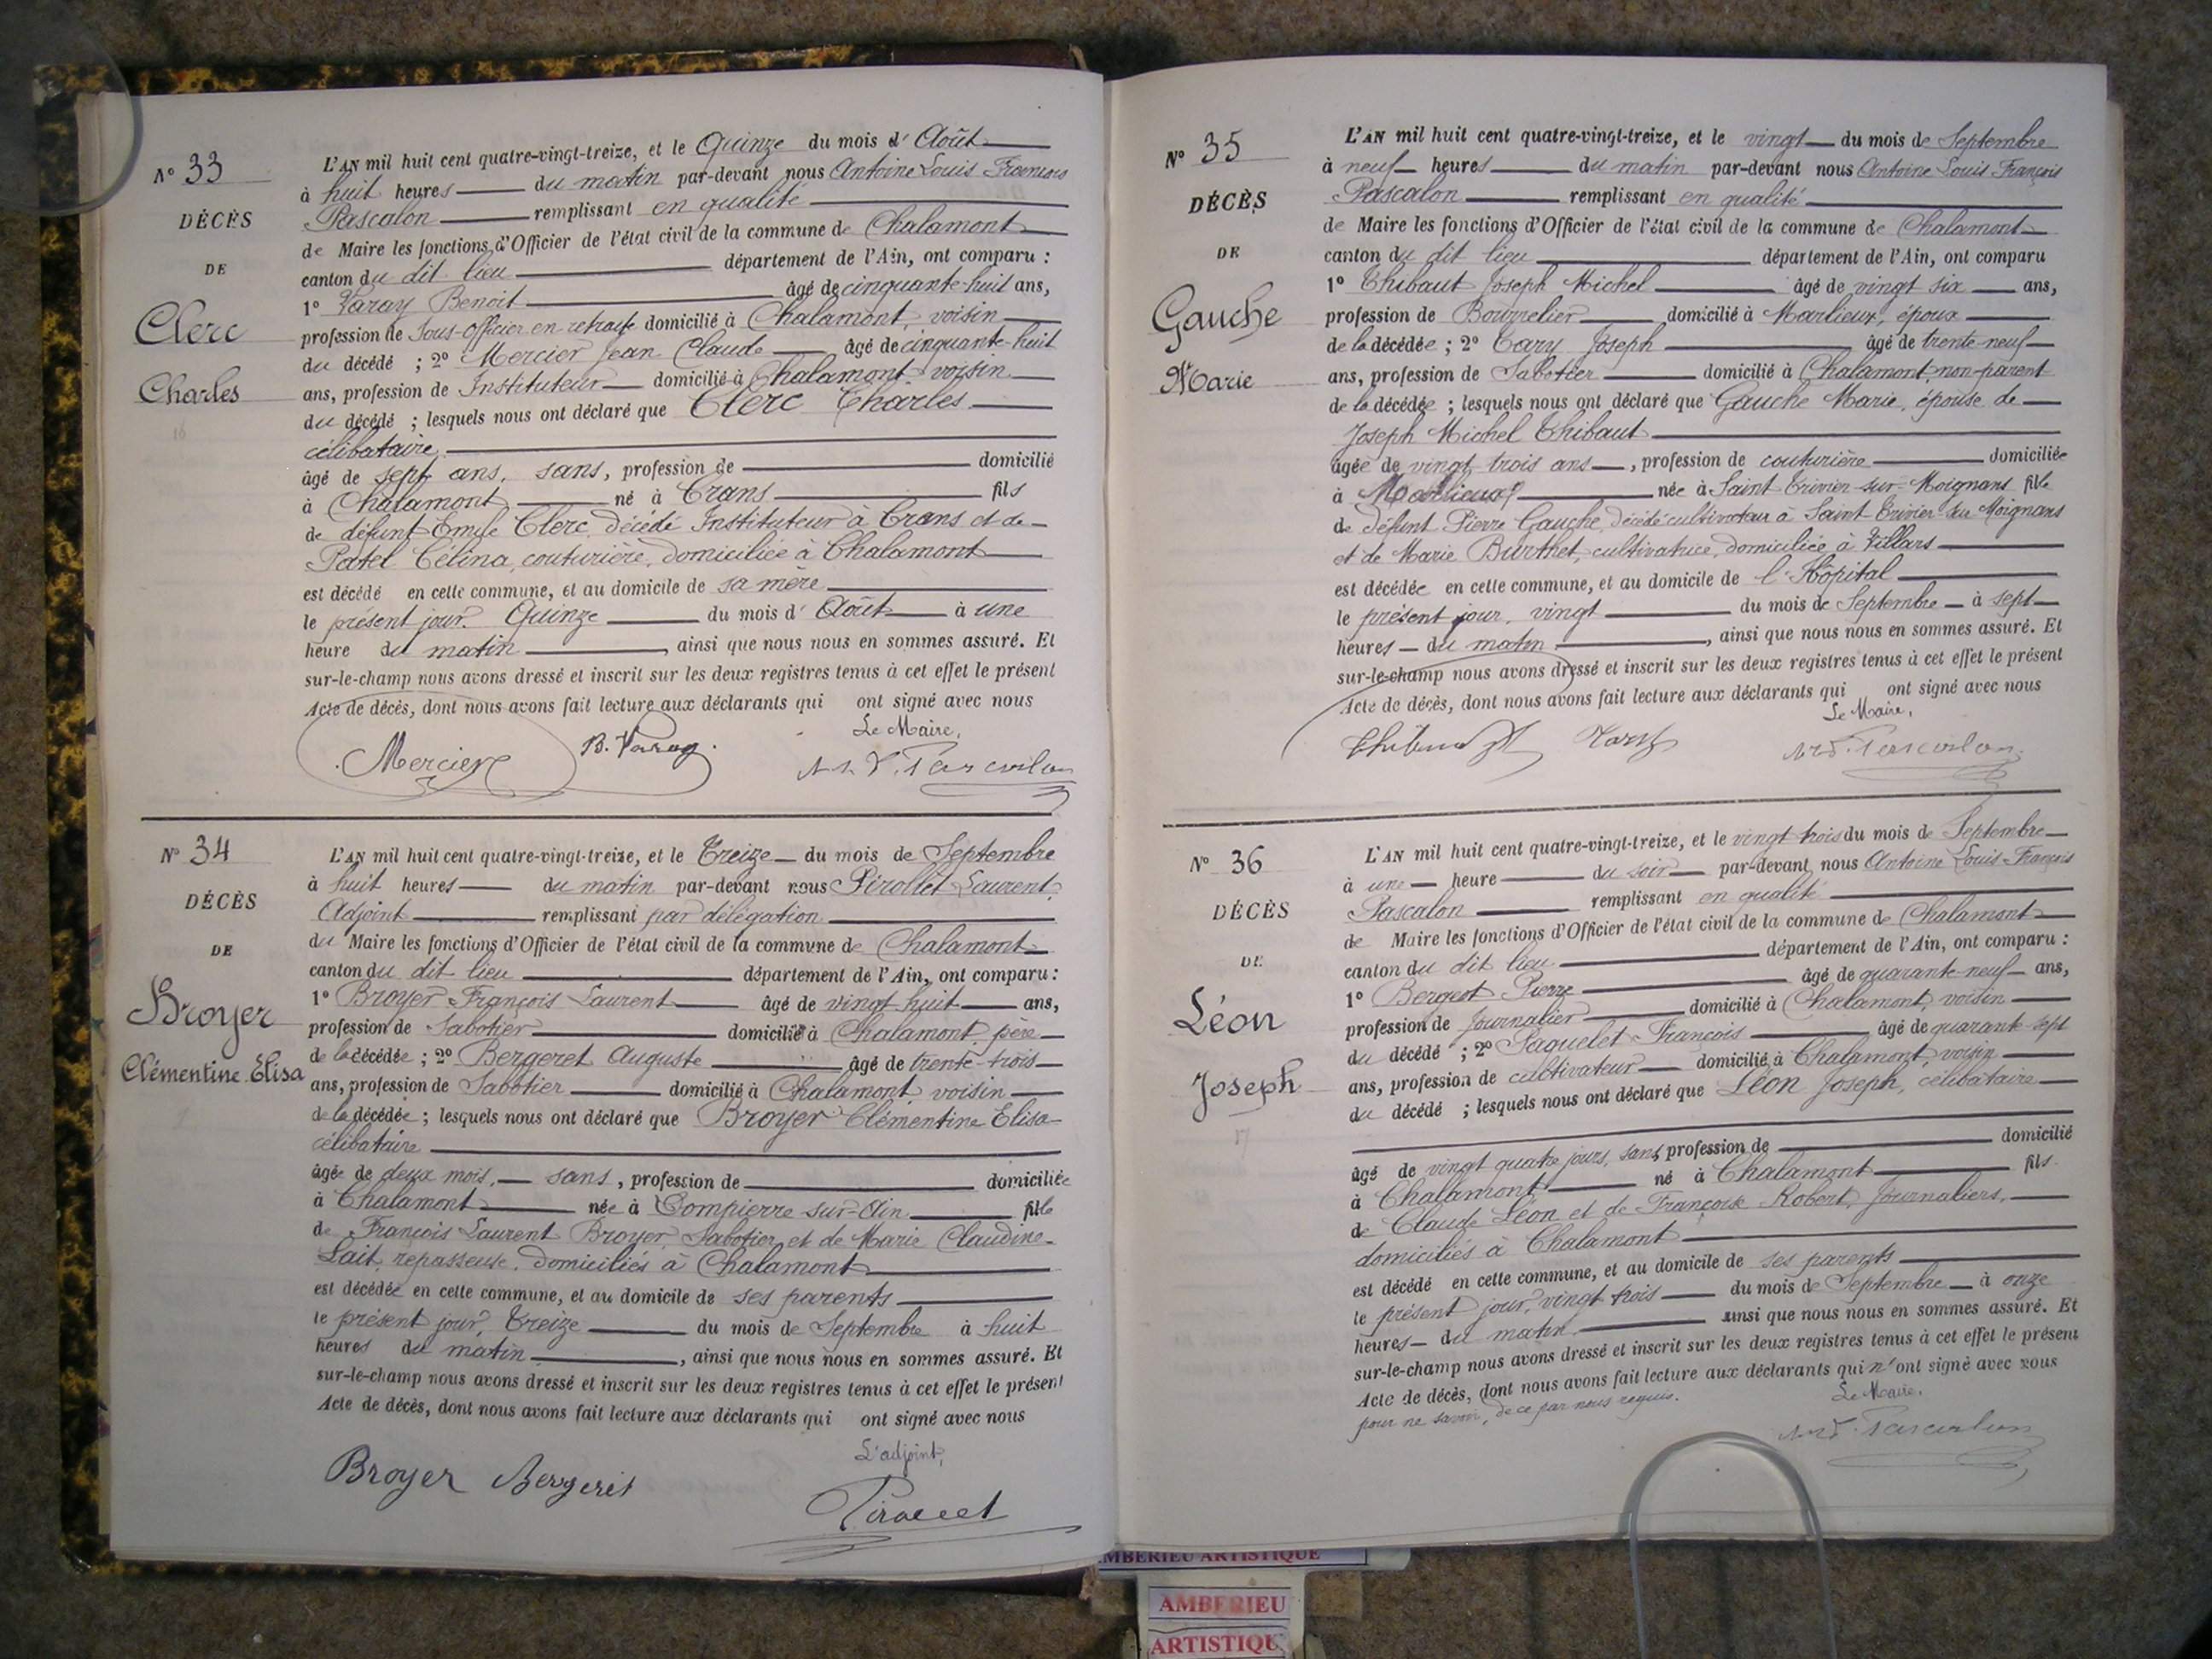 N° 33
DÉCÈS
DE
Clerc
Charles
L'AN mil huit cent quatre-vingt-treize, et le Quinze du mois d' Août
à huit heures du matin par-devant nous Antoine Louis François
Pascalon remplissant en qualité
de Maire les fonctions d'Officier de l'état civil de la commune de Chalamont
canton du dit lieu département de l'Ain, ont comparu :
1° Varay Benoit âgé de cinquante-huit ans,
profession de Sous-Officier en retraite domicilié à Chalamont, voisin
du décédé ; 2° Mercier Jean Claude âgé de cinquante-huit
ans, profession de Instituteur domicilié à Chalamont voisin
du décédé ; lesquels nous ont déclaré que Clerc Charles
célibataire
âgé de sept ans, sans, profession de domicilié
à Chalamont né à Crans fils
de défunt Emile Clerc, décédé Instituteur à Crans et de
Patel Célina, couturière, domiciliée à Chalamont
est décédé en cette commune, et au domicile de sa mère
le présent jour, Quinze du mois d' Août à une
heure du matin , ainsi que nous nous en sommes assuré. Et
sur-le-champ nous avons dressé et inscrit sur les deux registres tenus à cet effet le présent
Acte de décès, dont nous avons fait lecture aux déclarants qui ont signé avec nous
Le Maire,
Mercier B. Varay
N° 34
DÉCÈS
DE
Broyer
Clémentine Elisa
L'AN mil huit cent quatre-vingt-treize, et le Treize du mois de Septembre
à huit heures du matin par-devant nous Pirollet Laurent,
Adjoint remplissant par délégation
du Maire les fonctions d'Officier de l'état civil de la commune de Chalamont
canton du dit lieu département de l'Ain, ont comparu :
1° Broyer François Laurent âgé de vingt huit ans,
profession de Sabotier domicilié à Chalamont, père
de la décédée ; 2° Bergeret Auguste âgé de trente-trois
ans, profession de Sabotier domicilié à Chalamont voisin
de la décédée ; lesquels nous ont déclaré que Broyer Clémentine Elisa
célibataire
âgée de deux mois, sans, profession de domiciliée
à Chalamont née à sur-Ain fille
de François Laurent Broyer, Sabotier et de Marie Claudine
Lait, repasseuse, domiciliés à Chalamont
est décédée en cette commune, et au domicile de ses parents
le présent jour, Treize du mois de Septembre à huit
heures du matin , ainsi que nous nous en sommes assuré. Et
sur-le-champ nous avons dressé et inscrit sur les deux registres tenus à cet effet le présent
Acte de décès, dont nous avons fait lecture aux déclarants qui ont signé avec nous
L'adjoint,
Broyer Bergeret
N° 35
DÉCÈS
DE
Gauche
Marie
L'AN mil huit cent quatre-vingt-treize, et le vingt du mois de Septembre
à neuf heures du matin par-devant nous Antoine Louis François
Pascalon remplissant en qualité
de Maire les fonctions d'Officier de l'état civil de la commune de Chalamont
canton du dit lieu département de l'Ain, ont comparu
1° Thibaut Joseph Michel âgé de vingt six ans,
profession de Bourrelier domicilié à Marlieux, époux
de la décédée ; 2° Joseph âgé de trente-neuf
ans, profession de Sabotier domicilié à Chalamont, non-parent
de la décédée ; lesquels nous ont déclaré que Gauche Marie, épouse de
Joseph Michel Thibaut
âgée de vingt trois ans, profession de couturière domiciliée
à Marlieux née à Saint Trivier-sur-Moignans fille
de défunt Pierre Gauche, décédé cultivateur à Saint-Trivier-sur-Moignans
et de Marie Burthet, cultivatrice, domiciliée à Villars
est décédée en cette commune, et au domicile de l'Hôpital
le présent jour, vingt du mois de Septembre à sept
heures du matin , ainsi que nous nous en sommes assuré. Et
sur-le-champ nous avons dressé et inscrit sur les deux registres tenus à cet effet le présent
Acte de décès, dont nous avons fait lecture aux déclarants qui ont signé avec nous
Le Maire,
N° 36
DÉCÈS
DE
Léon
Joseph
L'AN mil huit cent quatre-vingt-treize, et le vingt trois du mois de Septembre
à une heure du soir par-devant nous Antoine Louis François
Pascalon remplissant en qualité
de Maire les fonctions d'Officier de l'état civil de la commune de Chalamont
canton du dit lieu département de l'Ain, ont comparu :
1° Pierre âgé de quarante-neuf ans,
profession de Journalier domicilié à Chalamont, voisin
du décédé ; 2° Paquelet François âgé de quarante-sept
ans, profession de cultivateur domicilié à Chalamont, voisin
du décédé ; lesquels nous ont déclaré que Léon Joseph, célibataire
âgé de vingt quatre jours, sans, profession de domicilié
à Chalamont né à Chalamont fils
de Claude Léon et de Françoise Robert, Journaliers,
domiciliés à Chalamont
est décédé en cette commune, et au domicile de ses parents
le présent jour, vingt trois du mois de Septembre à onze
heures du matin ainsi que nous nous en sommes assuré. Et
sur-le-champ nous avons dressé et inscrit sur les deux registres tenus à cet effet le présent
Acte de décès, dont nous avons fait lecture aux déclarants qui n'ont signé avec nous
pour ne savoir, de ce par nous requis.
Le Maire,
AMBERIEU ARTISTIQUE
AMBERIEU
ARTISTIQU